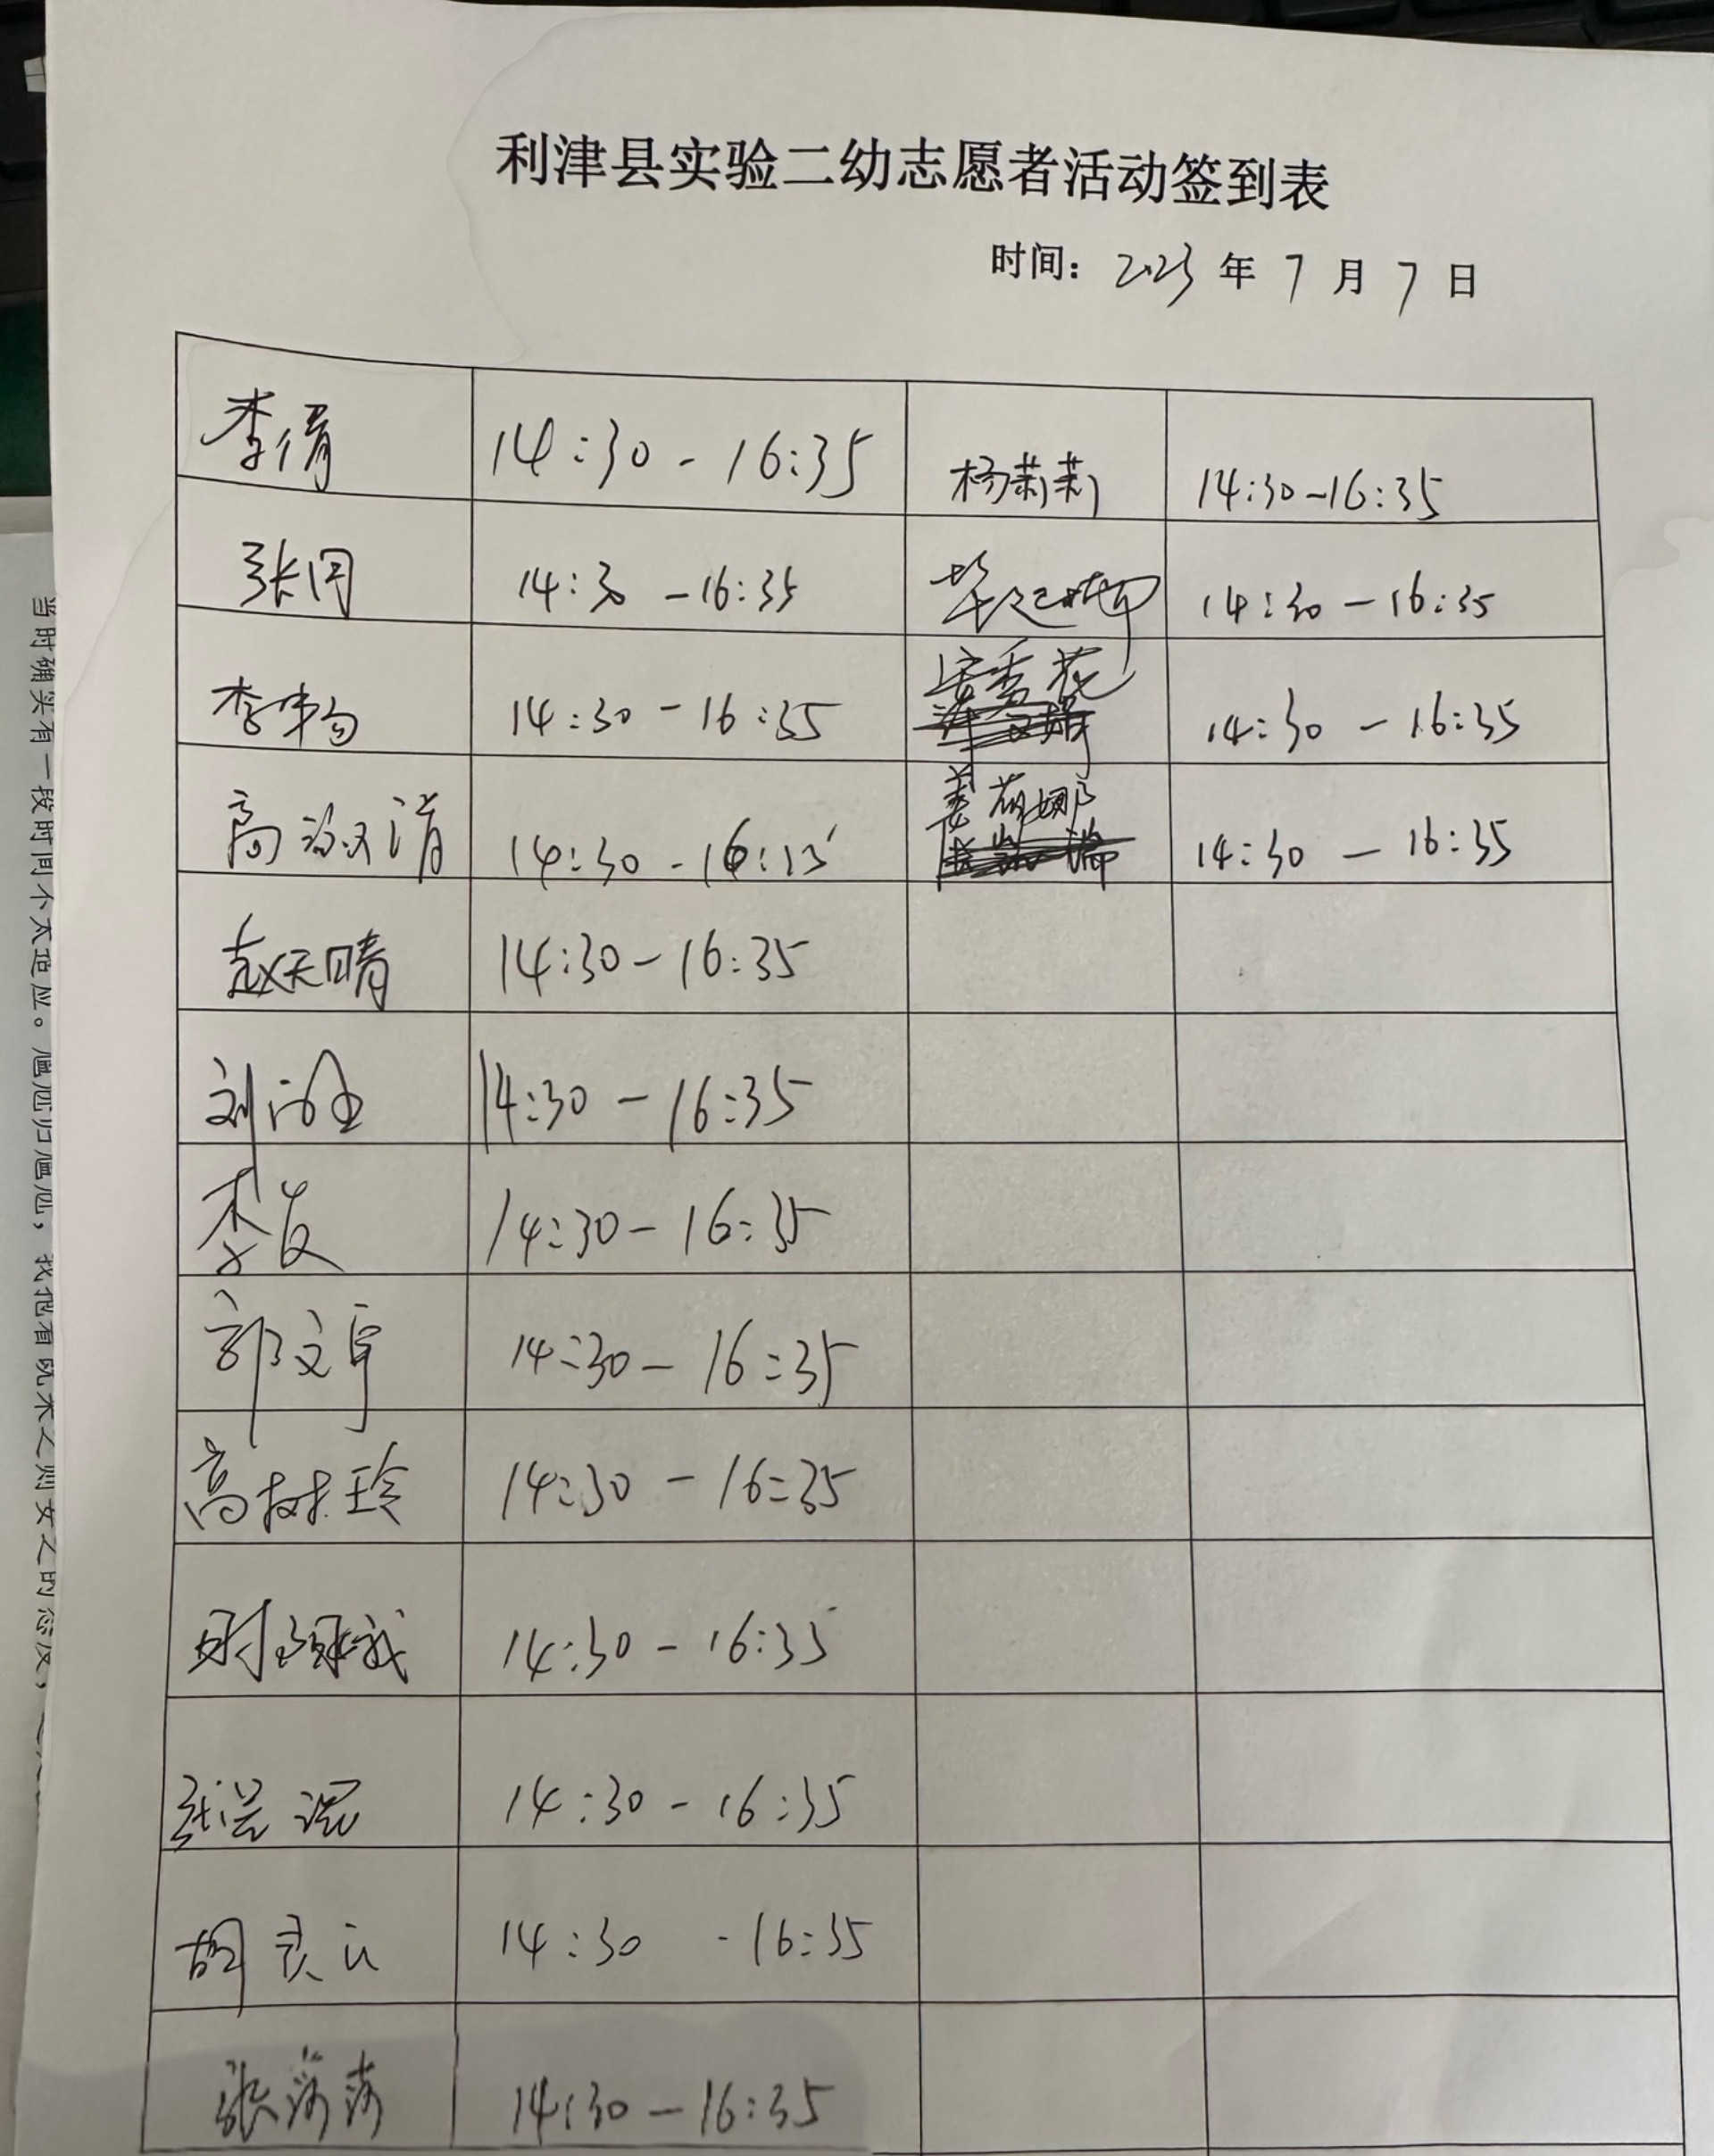 利津县实验二幼志愿者活动签到表
时间：2023年7月7日
李倩 14:30-16:35 杨莉莉 14:30-16:35
张闰 14:30-16:35 14:30-16:35
李 14:30-16:35 安秀花 14:30-16:35
高 清 14:30-16: 姜荷娜 14:30-16:35
赵天晴 14:30-16:35
刘 14:30-16:35
李友 14:30-16:35
郭文卓 14:30-16:35
高树玲 14:30-16:35
时 14:30-16:35
张 14:30-16:35
胡良云 14:30-16:35
张萍萍 14:30-16:35
当时确实有一段时间不太适应。尴尬归尴尬，